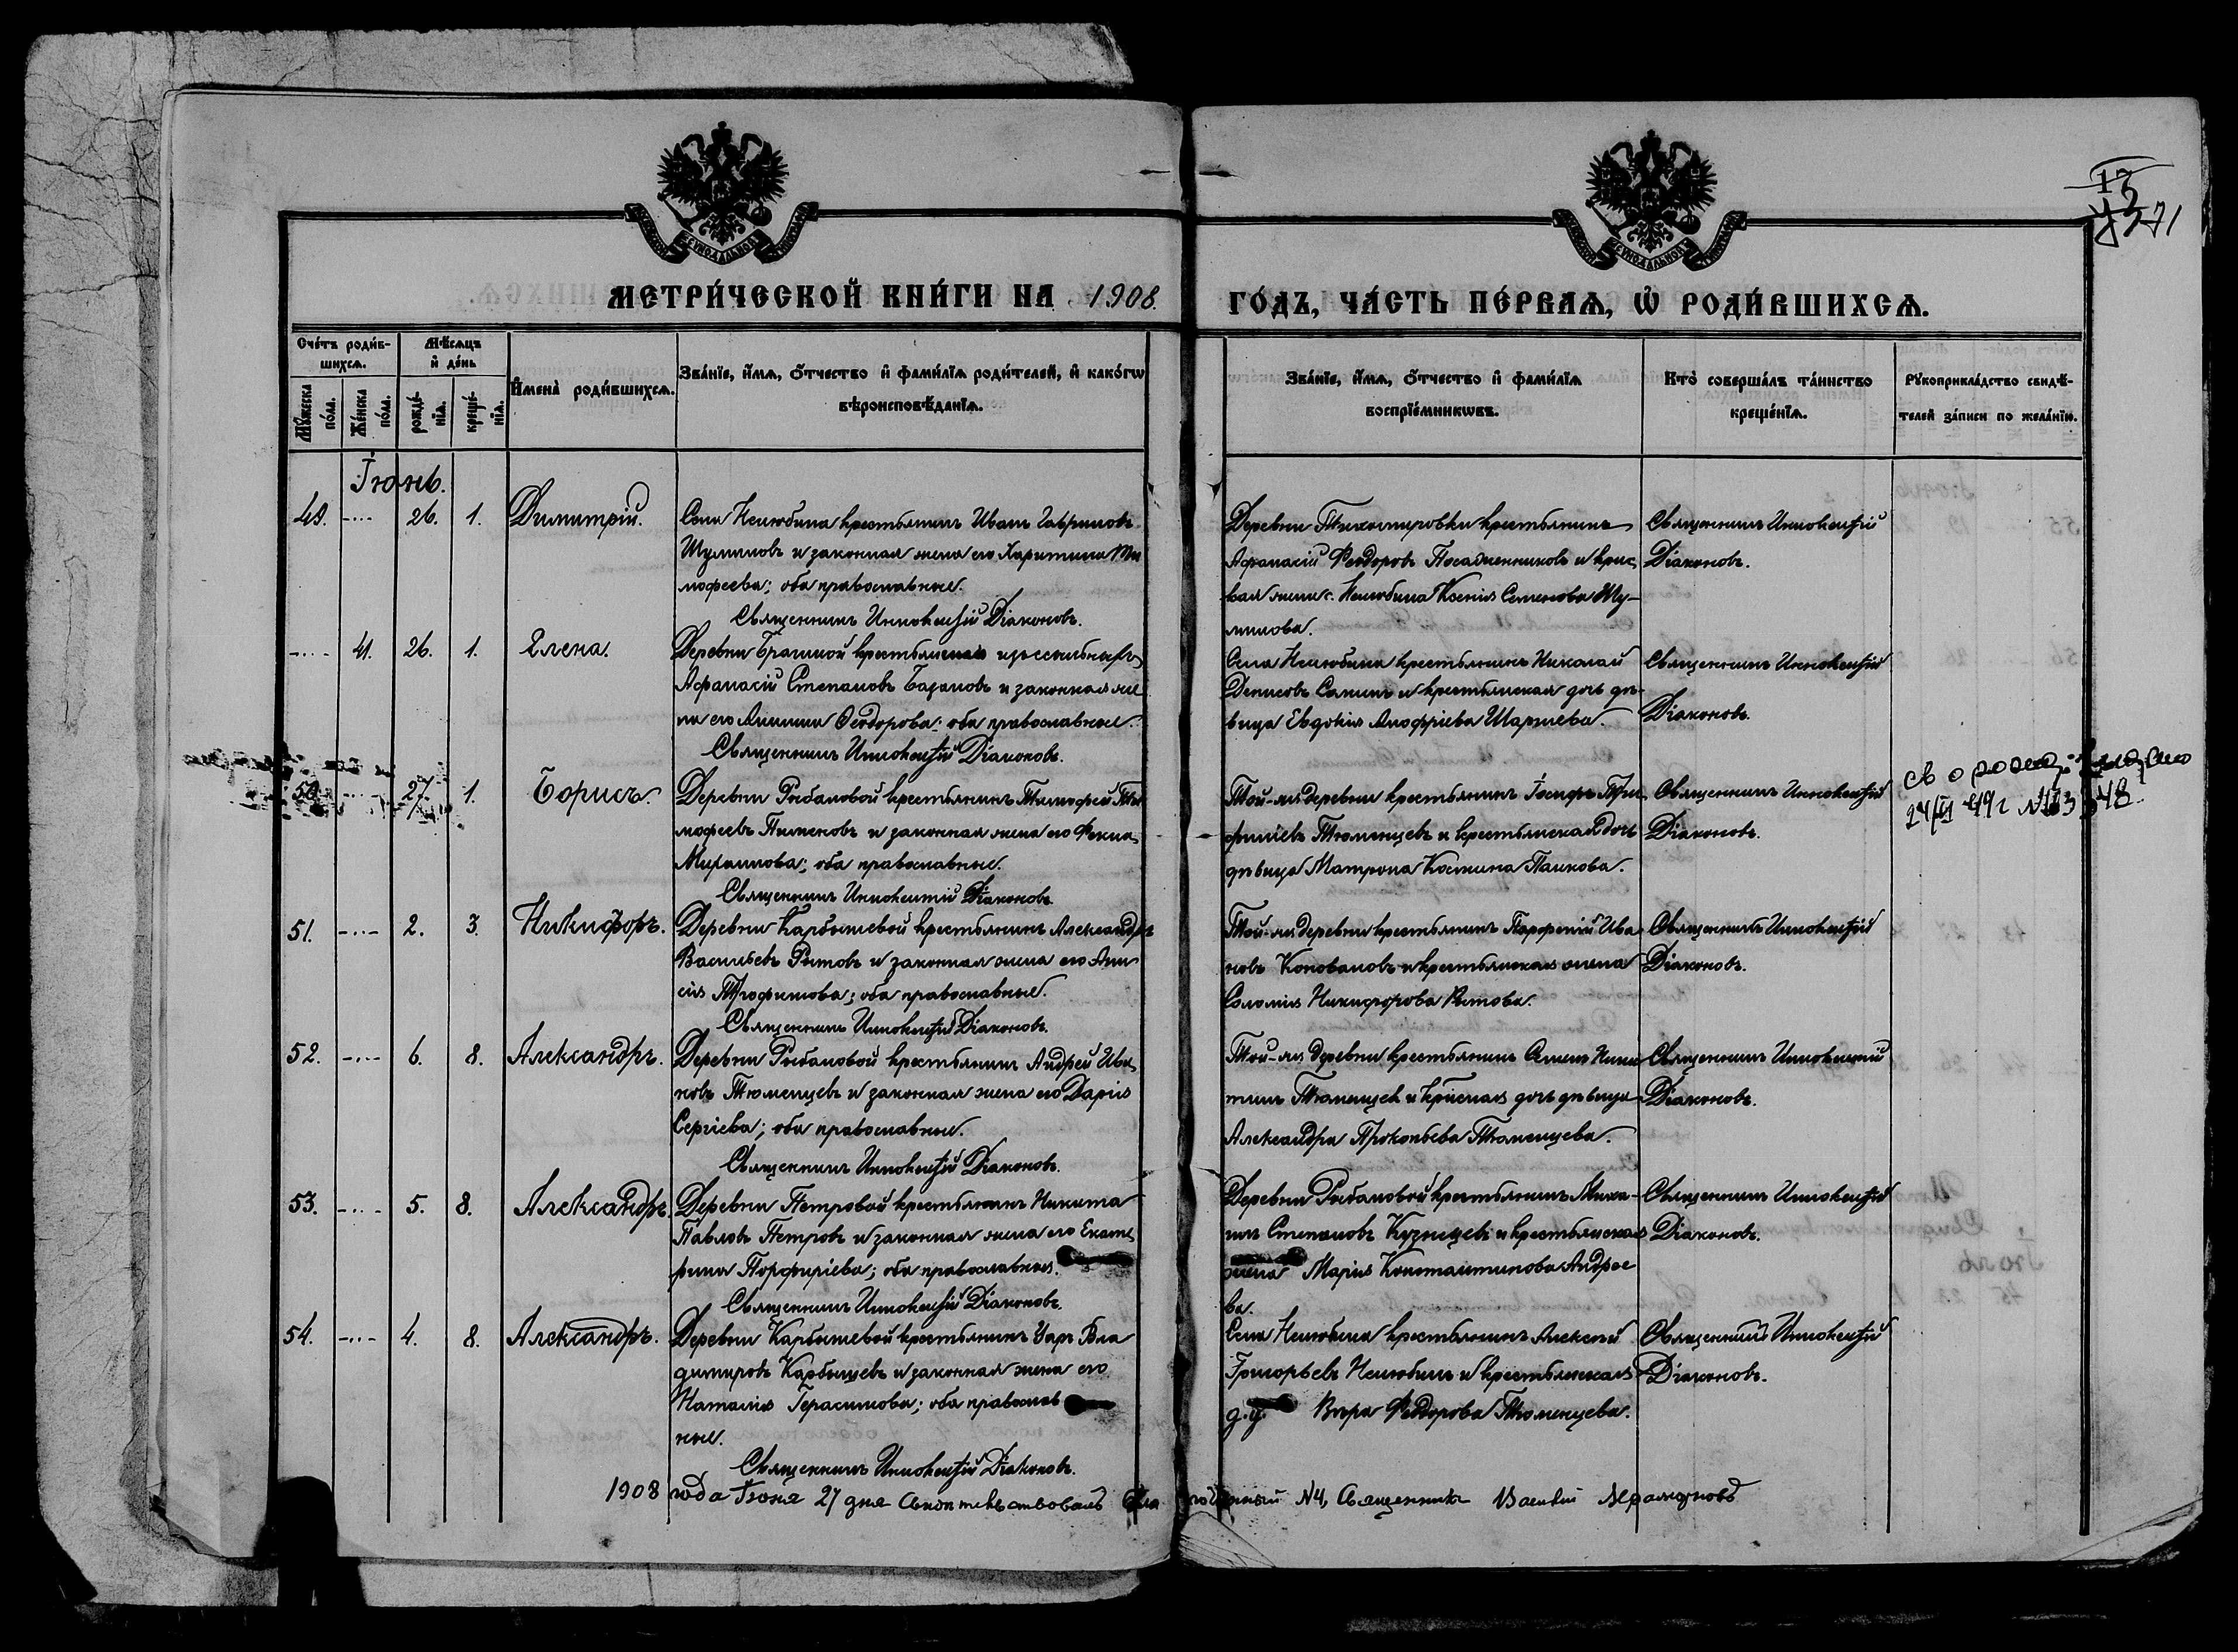 1908.
МЕТРИ́ЧЕСКОЙ КНИ́ГИ НА
ГО́ДЪ, ЧА́СТЬ ПЕ́РВАѦ, Ѿ РОДИ́ВШИХСѦ.
Сче́тъ роди́в-
шихсѧ.
Мѣ́сѧцъ
и҆ де́нь
Мꙋ́жеска
по́ла.
Же́нска
по́ла.
рожде́-
нїѧ.
креще́-
нїѧ.
И҆мена̀ роди́вшихсѧ.
Зва́нїе, и҆́мѧ, ѻ҆́тчество и҆ фами́лїѧ роди́телей, и҆ како́гѡ
вѣроисповѣ́данїѧ.
Зва́нїе, и҆́мѧ, ѻ҆́тчество и҆ фами́лїѧ
воспрїе́мникѡвъ.
Кто̀ соверша́лъ та́инство
креще́нїѧ.
Рꙋкоприкла́дство свидѣ́-
телей за́писи по жела́нїю.
Іюнь.
49. 26. 1. Димитрій.
Села Нелюбина крестьянинъ Иванъ Гавриловъ
Шумиловъ и законная жена его Харитина Ти
мофеева; оба православные.
Священникъ Иннокентій Діаконовъ.
Деревни Тихомировки крестьянинъ
Афанасій Феодоровъ Посаженниковъ и крес
кая жена с. Нелюбина Ксенія Семенова Шу-
милова.
Священникъ Иннокентій
Діаконовъ.
41. 26. 1. Елена.
Деревни крестьянинъ изъ ссыльныхъ
Афанасій Степановъ Базановъ и законная же
на его Феодорова; оба православные.
Священникъ Иннокентій Діаконовъ.
Села Нелюбина крестьянинъ Николай
Денисовъ и крестьянская дочь дѣ-
вица Евдокія
Священникъ Иннокентій
Діаконовъ.
50. 27. 1. Борисъ.
Деревни Рыбаловой крестьянинъ Тимофей Ти
мофеевъ Пименовъ и законная жена его Фекла
Михаилова; оба православные.
Священникъ Иннокентій Діаконовъ
Той-же деревни крестьянинъ Іосифъ
Тюменцевъ и крестьянская дочь
дѣвица Матрона Космина
Священникъ Иннокентій
Діаконовъ.
51. 2. 3. Никифоръ.
Деревни Карбышевой крестьянинъ Александръ
Васильевъ Рытовъ и законная жена его Ани
сія Трофимова; оба православные.
Священникъ Иннокентій Діаконовъ.
Той-же деревни крестьянинъ Парфеній Ива
новъ Коноваловъ и крестьянская жена
Соломія Никифорова Рытова.
Священникъ Иннокентій
Діаконовъ.
52. 6. 8. Александръ.
Деревни Рыбаловой крестьянинъ Андрей Ива
новъ Тюменцевъ и законная жена его Дарія
Сергіева; оба православные.
Священникъ Иннокентій Діаконовъ.
Той-же деревни крестьянинъ Семенъ Ники
тинъ Тюменцевъ и дочь дѣвица
Александра Прокопьева Тюменцева.
Священникъ Иннокентій
Діаконовъ.
53. 5. 8. Александръ.
Деревни Петровой крестьянинъ Никита
Павловъ Петровъ и законная жена его Екате
рина Порфиріева; оба православные.
Священникъ Иннокентій Діаконовъ.
Деревни Рыбаловой крестьянинъ Миха-
илъ Степановъ Кузнецовъ и крестьянская
жена Марія Константинова Андрее
ва.
Священникъ Иннокентій
Діаконовъ.
54. 4. 8. Александръ.
Деревни Карбышевой крестьянинъ Уаръ Вла
димировъ Карбышевъ и законная жена его
Наталія Герасимова; оба православ
ные.
Священникъ Иннокентій Діаконовъ.
Села Нелюбина крестьянинъ Алексѣй
Григорьевъ Нелюбинъ и крестьянская
д. Вѣра Феодорова Тюменцева.
Священникъ Иннокентій
Діаконовъ.
1908 года Іюня 27 дня Свидѣтельствовалъ Благочинный №4, Священникъ